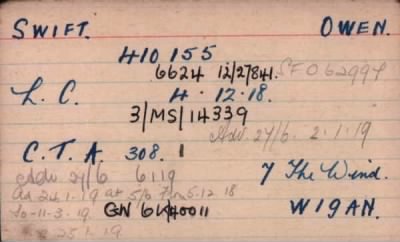 SWIFT. OWEN.
410155
6624 12/27841. SF062994
L. C. 4.12.18.
3/MS/14339
Adv. 24/6. 2.1.19
C.T.A. 308. 1
Adv 24/6 6119 7 The Wiend.
24.1.19 at 5/6 5.12 18
to-11-3.19. GN 40011 WIGAN.
25 1. 19